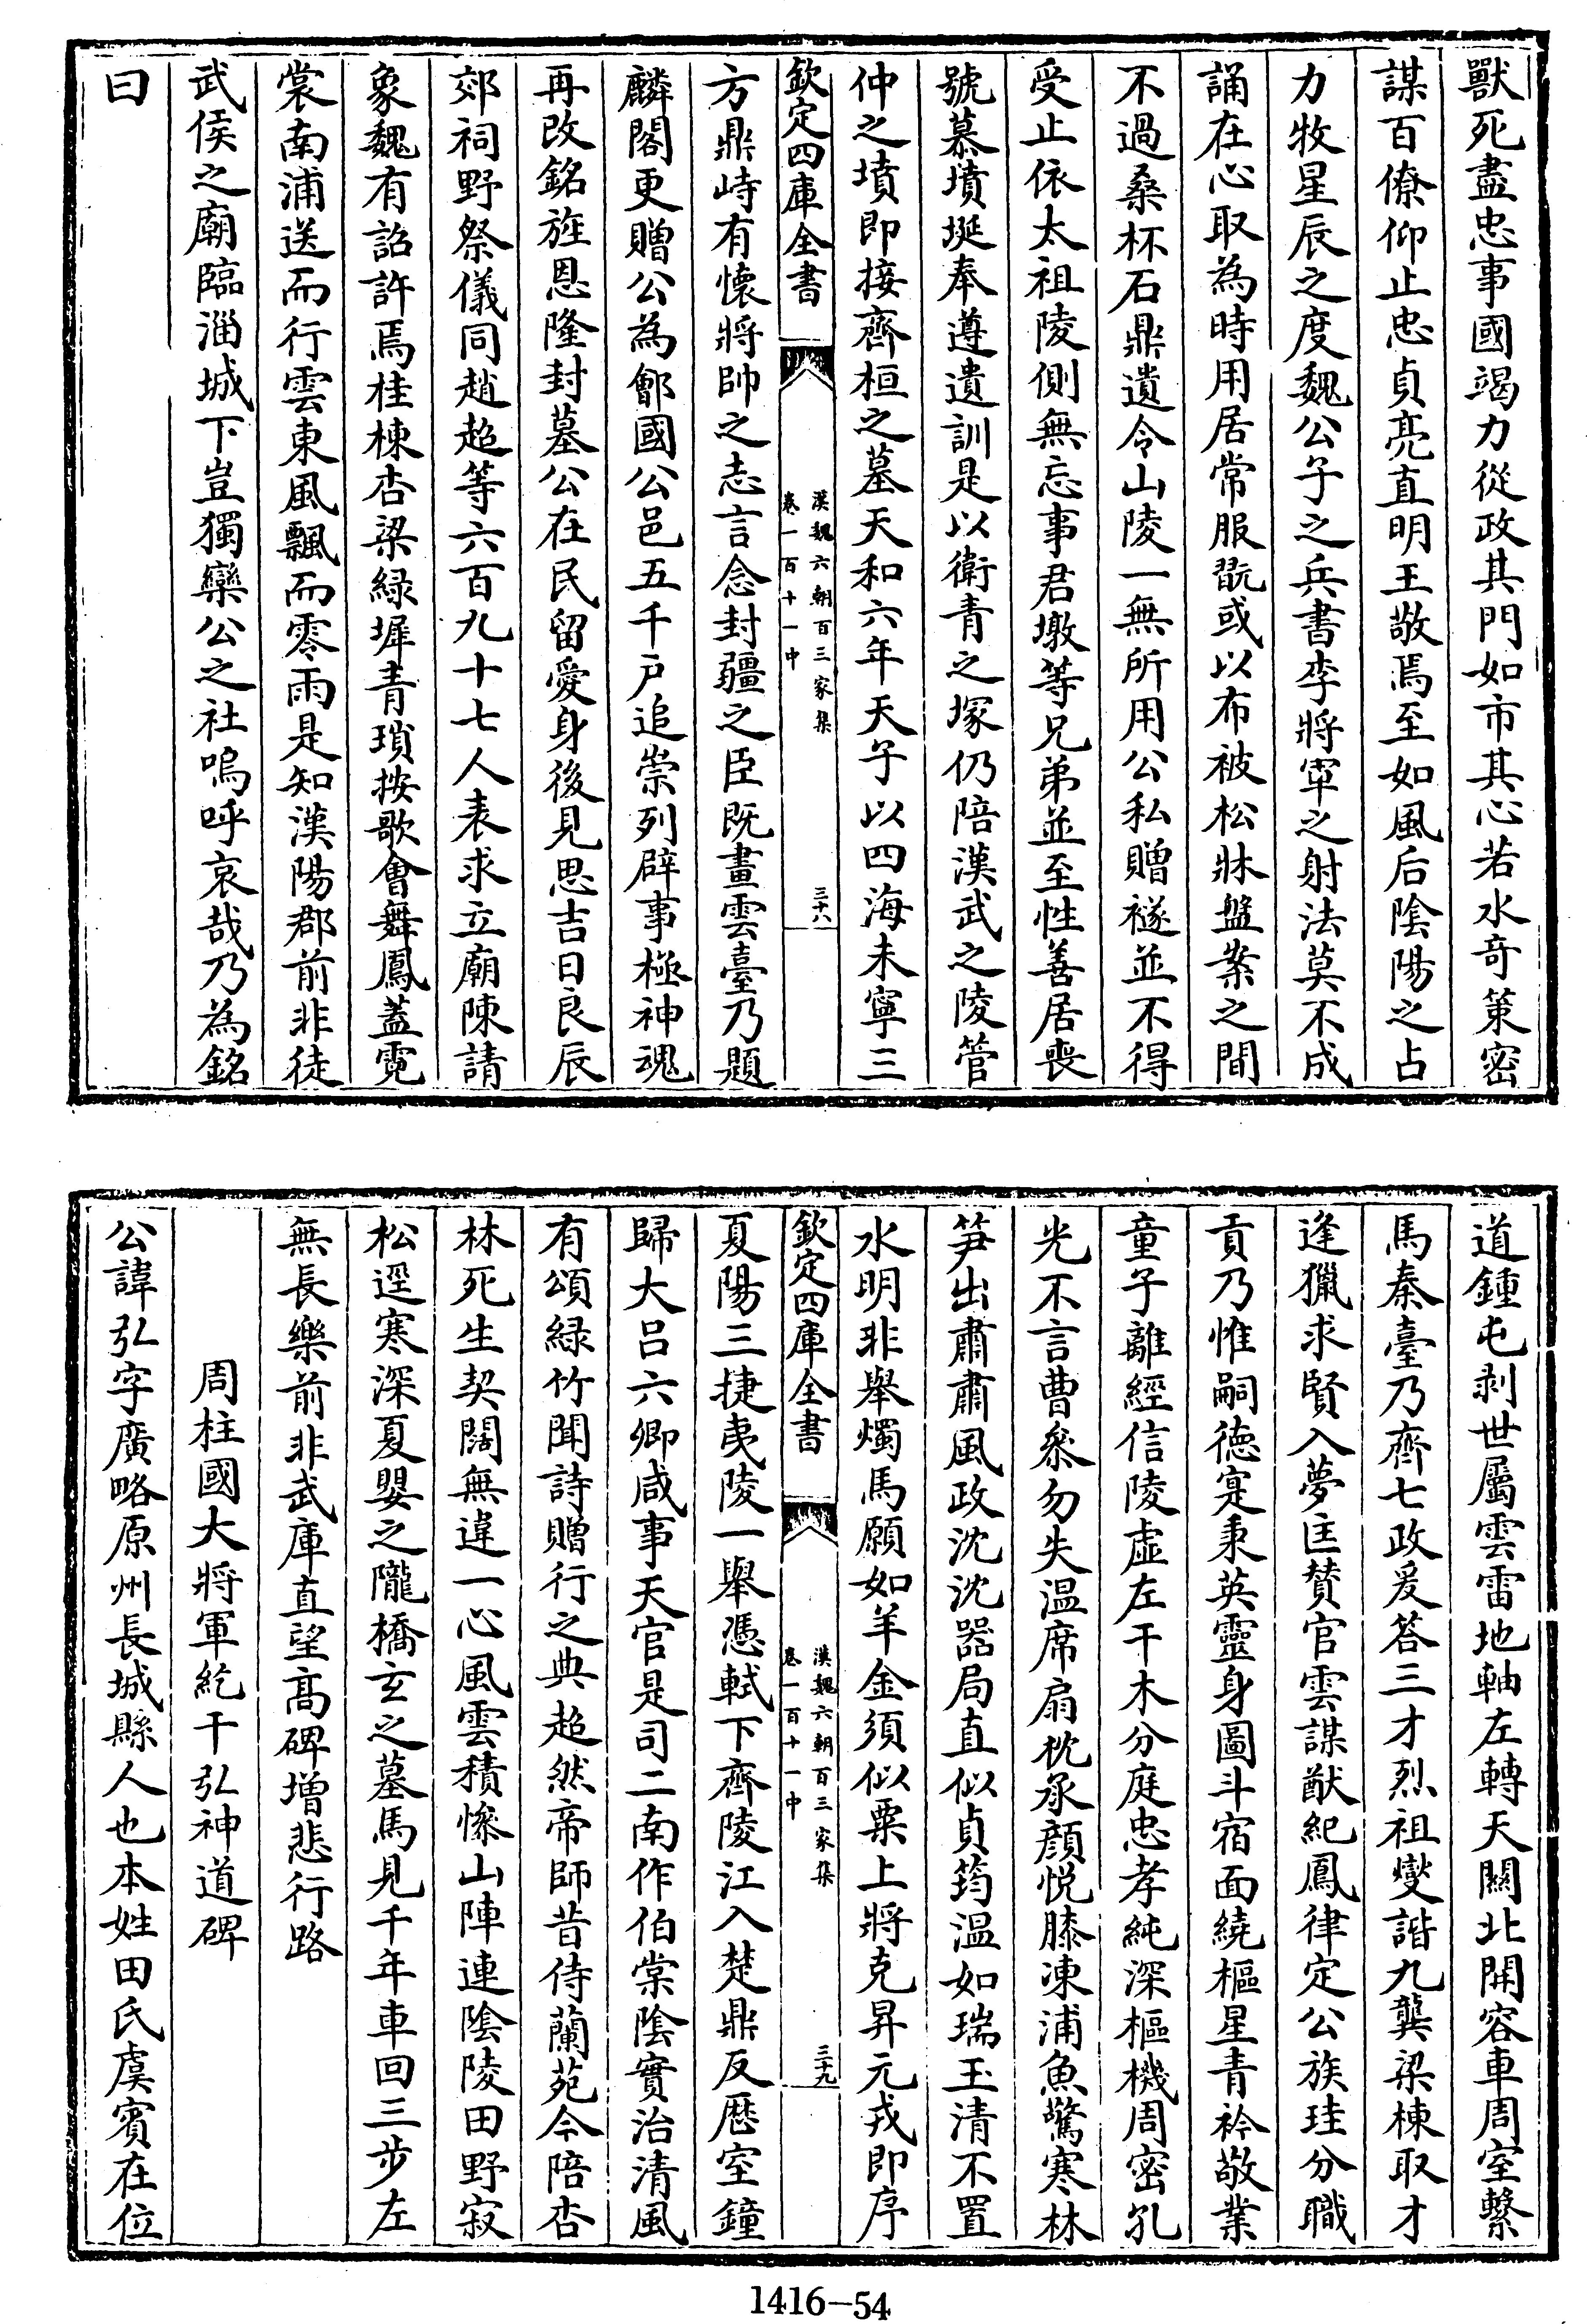 獸死盡忠事國竭力從政其門如市其心若水竒策密
謀百僚仰止忠貞亮直明王敬焉至如風后隂陽之占
力牧星辰之度魏公子之兵書李將軍之射法莫不成
誦在心取為時用居常服翫或以布被松牀盤案之間
不過桑杯石鼎遺令山陵一無所用公私贈襚並不得
受止依太祖陵側無忘事君墩等兄弟並至性善居喪
號慕墳埏奉遵遺訓是以衛青之塚仍陪漢武之陵管
仲之墳即接齊桓之墓天和六年天子以四海未寧三
欽定四庫全書
漢魏六朝百三家集
卷一百十一中
三十八
方鼎峙有懷將帥之志言念封疆之臣既畫雲臺乃題
麟閣更贈公為鄫國公邑五千戸追崇列辟事極神魂
再改銘旌恩隆封墓公在民留愛身後見思吉日良辰
郊祠野祭儀同趙超等六百九十七人表求立廟陳請
象魏有詔許焉桂棟杏梁緑墀青瑣按歌會舞鳳蓋霓
裳南浦送而行雲東風飄而零雨是知漢陽郡前非徒
武侯之廟臨淄城下豈獨欒公之社嗚呼哀哉乃為銘
曰
道鍾屯剥世屬雲雷地軸左轉天關北開容車周室繫
馬秦臺乃齊七政爰答三才烈祖燮諧九龔梁棟取才
逢獵求賢入夢匡賛官雲謀猷紀鳳律定公族珪分職
貢乃惟嗣徳寔秉英靈身圖斗宿面繞樞星青衿敬業
童子離經信陵虚左干木分庭忠孝純深樞機周密孔
光不言曹叅勿失温席扇枕承顔悦膝凍浦魚驚寒林
笋出肅肅風政沈沈器局直似貞筠温如瑞玉清不置
水明非舉燭馬願如羊金須似粟上將克昇元戎即序
欽定四庫全書
漢魏六朝百三家集
卷一百十一中
三十九
夏陽三捷夷陵一舉憑軾下齊陵江入楚鼎反厯室鐘
歸大吕六卿咸事天官是司二南作伯棠隂實治清風
有頌緑竹聞詩贈行之典超然帝師昔侍蘭苑今陪杏
林死生契闊無違一心風雲積慘山陣連隂陵田野寂
松逕寒深夏嬰之隴橋玄之墓馬見千年車回三步左
無長樂前非武庫直望髙碑增悲行路
周柱國大將軍紇干弘神道碑
公諱弘字廣略原州長城縣人也本姓田氏虞賓在位
1416—54